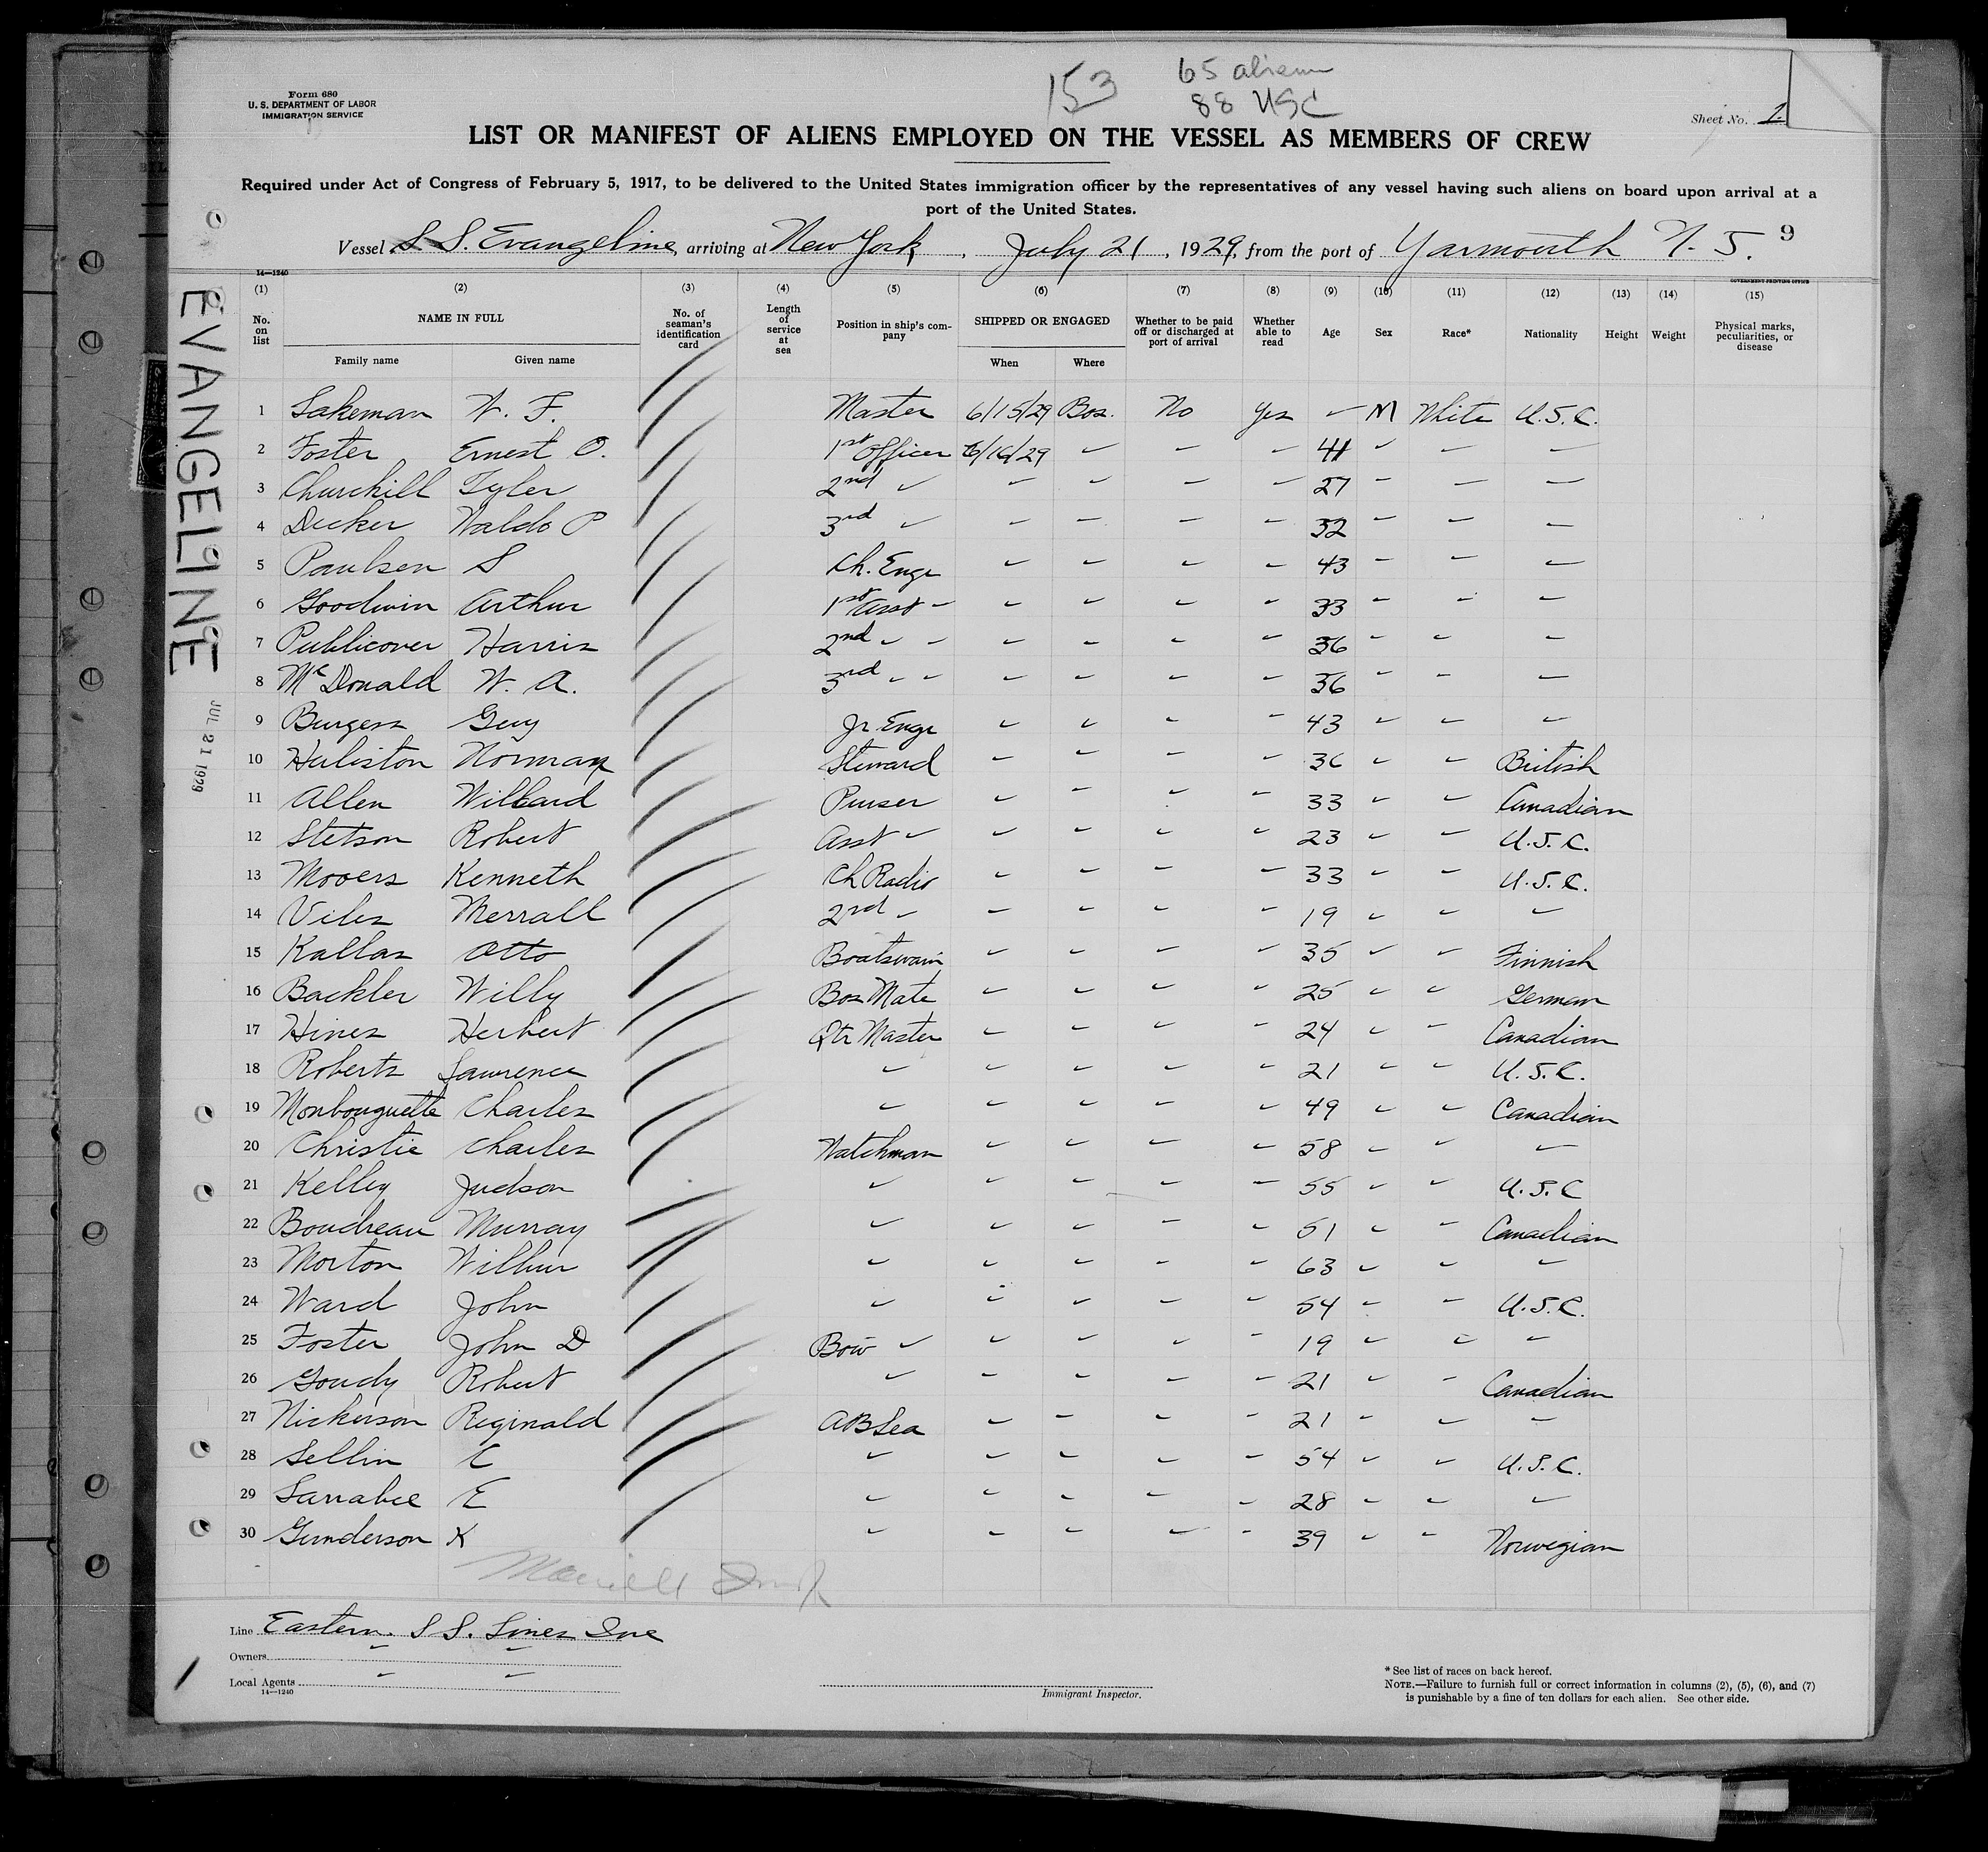 153 65 aliens
88 USC
Form 680
U. S. DEPARTMENT OF LABOR
IMMIGRATION SERVICE
Sheet No. 1
LIST OR MANIFEST OF ALIENS EMPLOYED ON THE VESSEL AS MEMBERS OF CREW
Required under Act of Congress of February 5, 1917, to be delivered to the United States immigration officer by the representatives of any vessel having such aliens on board upon arrival at a
port of the United States.
Vessel S. S. Evangeline, arriving at New York, July 21, 1929, from the port of Yarmouth N. S. 9
14—1240 GOVERNMENT PRINTING OFFICE
EVANGELINE
JUL 21 1929
(1) No. on list (2) NAME IN FULL Family name Given name (3) No. of seaman's identification card (4) Length of service at sea (5) Position in ship's company (6) SHIPPED OR ENGAGED When Where (7) Whether to be paid off or discharged at port of arrival (8) Whether able to read (9) Age (10) Sex (11) Race* (12) Nationality (13) Height (14) Weight (15) Physical marks, peculiarities, or disease
1 Lakeman W. F. Master 6/15/29 Bos. No Yes " M White U.S.C.
2 Foster Ernest O. 1st Officer 6/16/29 " " " 41 " " "
3 Churchill Tyler 2nd " " " " " 27 " " "
4 Decker Waldo P 3rd " " " " " 32 " " "
5 Paulsen S Ch. Engr " " " " 43 " " "
6 Goodwin Arthur 1st Asst " " " " " 33 " " "
7 Publicover Harris 2nd " " " " " " 36 " " "
8 McDonald W. A. 3rd " " " " " " 36 " " "
9 Burgess Guy Jr Engr " " " " 43 " " "
10 Huliston Norman Steward " " " " 36 " " British
11 Allen Willard Purser " " " " 33 " " Canadian
12 Stetson Robert Asst " " " " " 23 " " U.S.C.
13 Mooers Kenneth Ch Radio " " " " 33 " " U.S.C.
14 Viles Merrall 2nd " " " " " 19 " " "
15 Kallas Otto Boatswain " " " " 35 " " Finnish
16 Backler Willy Bos Mate " " " " 25 " " German
17 Hines Herbert Qtr Master " " " " 24 " " Canadian
18 Roberts Lawrence " " " " " 21 " " U.S.C.
19 Monbouquette Charles " " " " " 49 " " Canadian
20 Christie Charles Watchman " " " " 58 " " "
21 Kelley Judson " " " " " 55 " " U.S.C
22 Boudreau Murray " " " " " 51 " " Canadian
23 Morton Wilbur " " " " " 63 " " "
24 Ward John " " " " " 54 " " U.S.C.
25 Foster John D Bow " " " " " 19 " " "
26 Goudy Robert " " " " " 21 " " Canadian
27 Nickerson Reginald AB Sea " " " " 21 " " "
28 Sellin C " " " " " 54 " " U.S.C.
29 Larrabee E " " " " " 28 " " "
30 Gunderson K " " " " " 39 " " Norwegian
Line Eastern S S. Lines Inc
Owners " "
Local Agents " "
14—1240
Immigrant Inspector.
* See list of races on back hereof.
NOTE.—Failure to furnish full or correct information in columns (2), (5), (6), and (7)
is punishable by a fine of ten dollars for each alien. See other side.